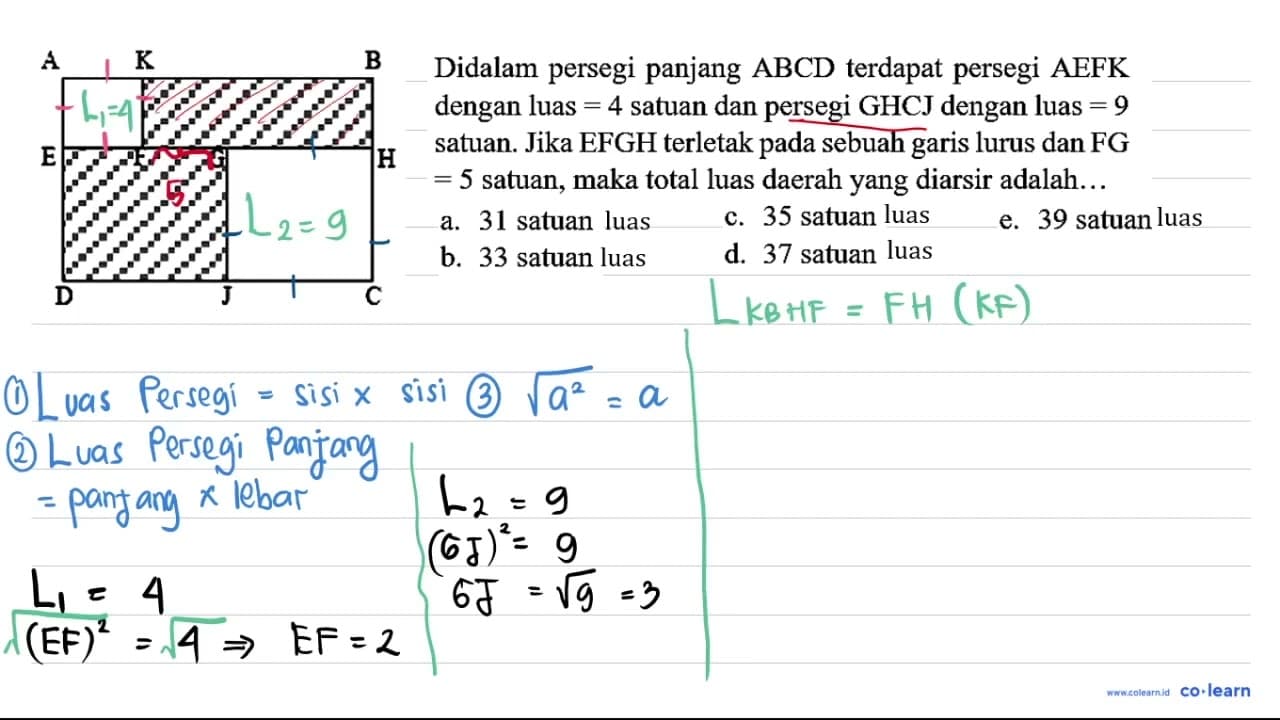 A K B
L₁=4
E F G H
5
L₂ = 9
D J C
Didalam persegi panjang ABCD terdapat persegi AEFK
dengan luas = 4 satuan dan persegi GHCJ dengan luas = 9
satuan. Jika EFGH terletak pada sebuah garis lurus dan FG
= 5 satuan, maka total luas daerah yang diarsir adalah...
a. 31 satuan luas c. 35 satuan luas e. 39 satuan luas
b. 33 satuan luas d. 37 satuan luas
L KBHF = FH (KF)
① Luas Persegi = sisi x sisi ③ √a² = a
② Luas Persegi Panjang
= panjang x lebar
L₁ = 4
√(EF)² = √4 ⇒ EF = 2
L₂ = 9
(GJ)² = 9
GJ = √9 = 3
www.colearn.id co·learn